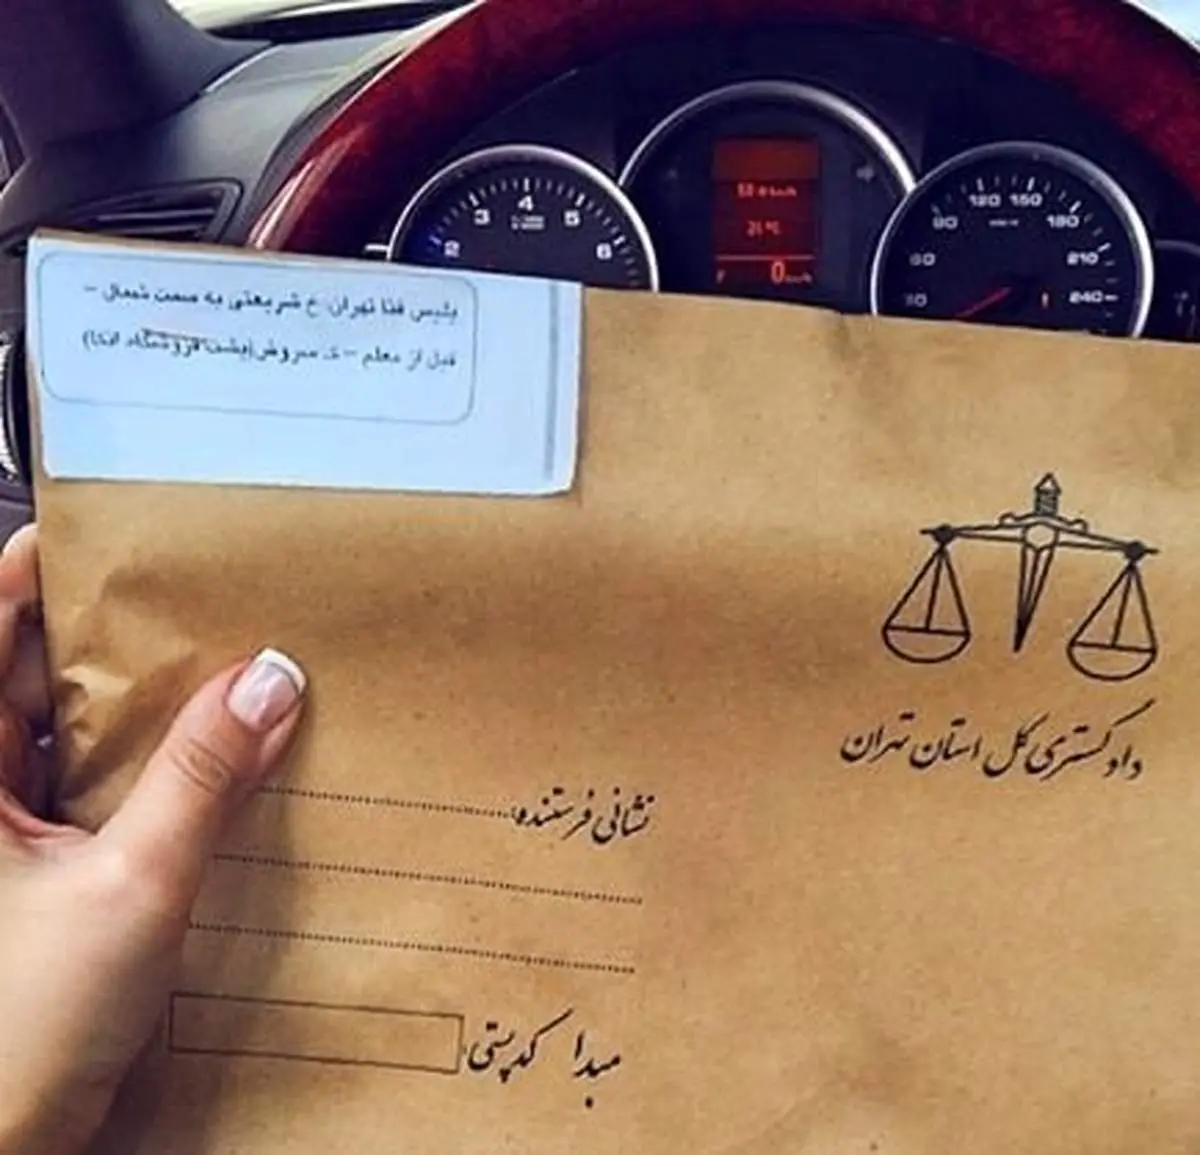 پلیس فتا تهران: خ شریعتی به سمت شمال -
قبل از معلم - خ سروش (پشت فروشگاه اتکا)
دادگستری کل استان تهران
نشانی فرستنده:
مبدا کدپستی:
2 3 4 5 6
21 °C
0 km/h
90 120 150 180 210 240